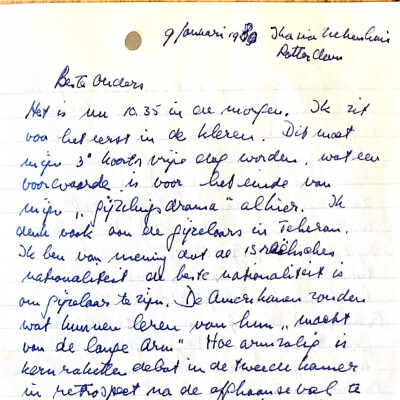 9 Januari 1980 Ikazia Ziekenhuis
Rotterdam
Beste Ouders
Het is nu 10.35 in de morgen. Ik zit
voor het eerst in de kleren. Dit moet
mijn 3e koorts vrije dag worden, wat een
voorwaarde is voor het einde van
mijn „gijzelingsdrama" alhier. Ik
denk vaak aan de gijzelaars in Teheran.
Ik ben van mening dat de Israëlische
nationaliteit de beste nationaliteit is
om gijzelaar te zijn. De Amerikanen zouden
wat kunnen leren van hun „macht
van de lange arm" Hoe armzalig is
kernraketten debat in de tweede kamer
in retrospect na de afghaanse val te